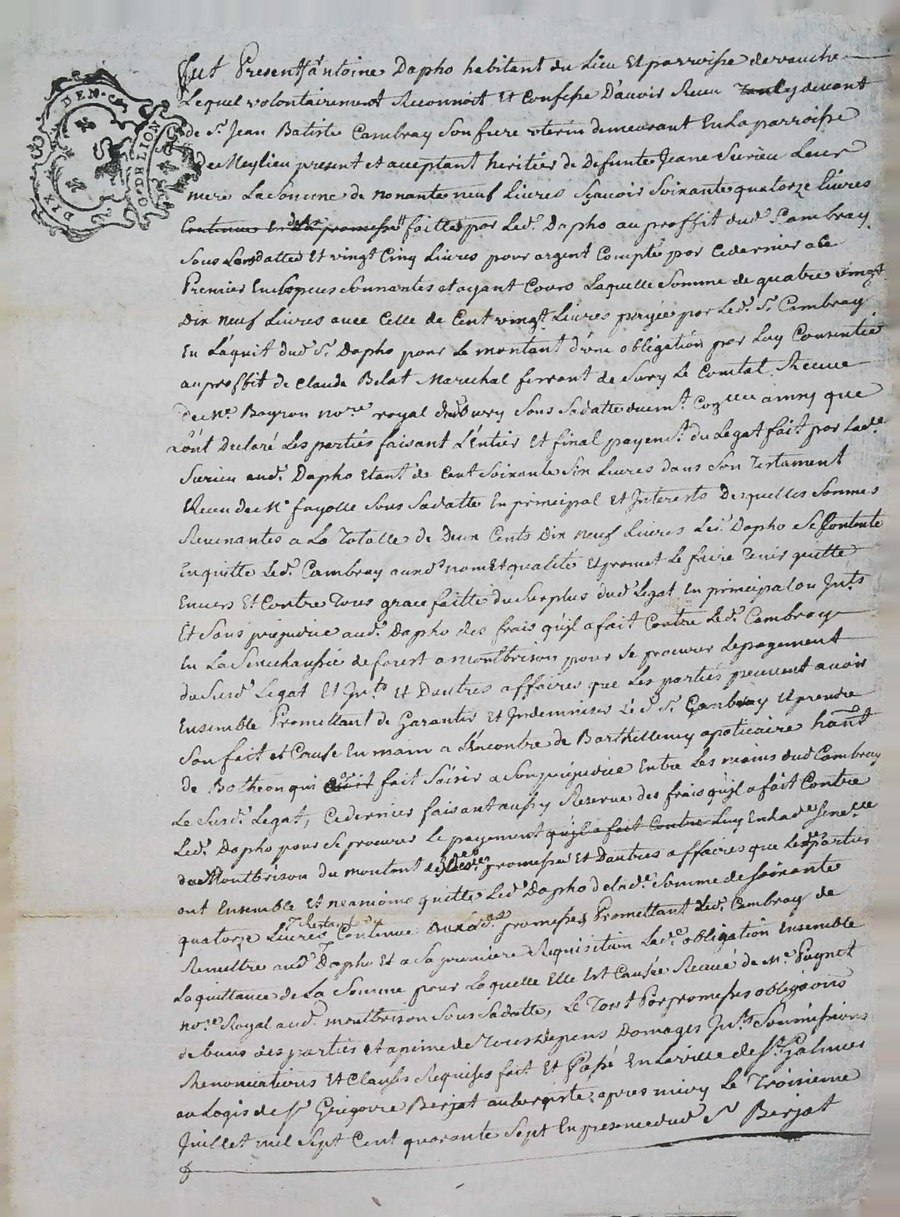 DIX DEN.
G. DE LION
Fut Present antoine Dapho habitant du Lieu Et parroisse deveauche
Lequel volontairement Reconnoit Et Confesse D'avoir Receu cy devant
de Sr. Jean Batiste Cambray Son frere uterin demeurant En La parroisse
de Meylieu present et acceptant heritier de Defunte Jeane Surieu Leur
mere La Somme de nonante neuf Livres Sçavoir Soixante quatorze Livres
Contenues En promesse faittes par Led. Dapho au proffit dud. Cambray
Sous Leurs dattes Et vingt Cinq Livres pour argent Comptés par Cedernier a Ce
Premier En Especes Sonnantes et ayant Cours Laquelle Somme de quatre vingt
Dix neuf Livres avec Celle de Cent vingt Livres payées par Led. Sr. Cambray
En L'aquit dud. Sr. Dapho pour Le montant d'une obligation par Luy Consentie
au proffit de Claude Belat Marechal ferrant de Sury Le Comtal Receue
de Me. Bayron nore. royal dud. Sury Sous Sa datte ainsy que
L'ont Declaré Les parties faisant L'Entier Et final payemt. du Legat fait par Lade.
Surieu aud. Dapho Etant de Cent Soixante Six Livres dans Son Testament
Receu de Me. fayolle Sous Sa datte En principal Et Interests Desquelles Sommes
Revenantes a La Totalle de Deux Cents Dix neuf Livres Led. Dapho Se Contente
En quitte Led. Cambray auxds. nom Et qualité Et promet Le faire Tenir quitte
Envers Et Contre Tous grace faitte du Surplus dud. Legat En principal ou Ints.
Et Sans prejudice aud. Dapho des frais qu'il a fait Contre Led. Cambray
En La Senechaussée de forest a Montbrison pour Se procurer Le payement
du Susd. Legat Et Ints. Et Dautres affaires que Les parties peuvent avoir
Ensemble Promettant de Garantir Et Indemniser Led. Sr. Cambray Et prendre
Son fait et Cause En main a L'Encontre de Barthellemy apoticaire habitt.
de Botheon qui a fait Saisir a Son prejudice Entre Les mains dud. Cambray
Le Susd. Legat, Cedernier faisant aussy Reserve des frais qu'il a fait Contre
Led. Dapho pour Se procurer Le payement qu'il a fait Contre Luy En Lade. Senelle.
de Montbrison du montant desdes. promesse Et Dautres affaires que Lesd. parties
ont Ensemble Et neanmoins quitte Led. Dapho de Lade. Somme de Soixante
quatorze Livres Restant Contenue auxds. promesses, Promettant Led. Cambray de
Remettre aud. Dapho Et a Sa premiere Requisition Lade. obligation Ensemble
La quittance de La Somme pour Laquelle Elle Est Causée Receue de Me. Puynet
nore. Royal aud. Montbrison Sous Sa datte, Le Tout Par promesses obligaons
de biens des parties et a peine de Tous depens Domages Ints. Soumissions
Renonciations Et Clauses Requises fait Et Passé En La ville de St. Galmier
au Logis de Sr. Gregoire Berjat aubergiste apres midy Le Troisieme
Juillet mil Sept Cent quarante Sept En presence dud. Sr. Berjat